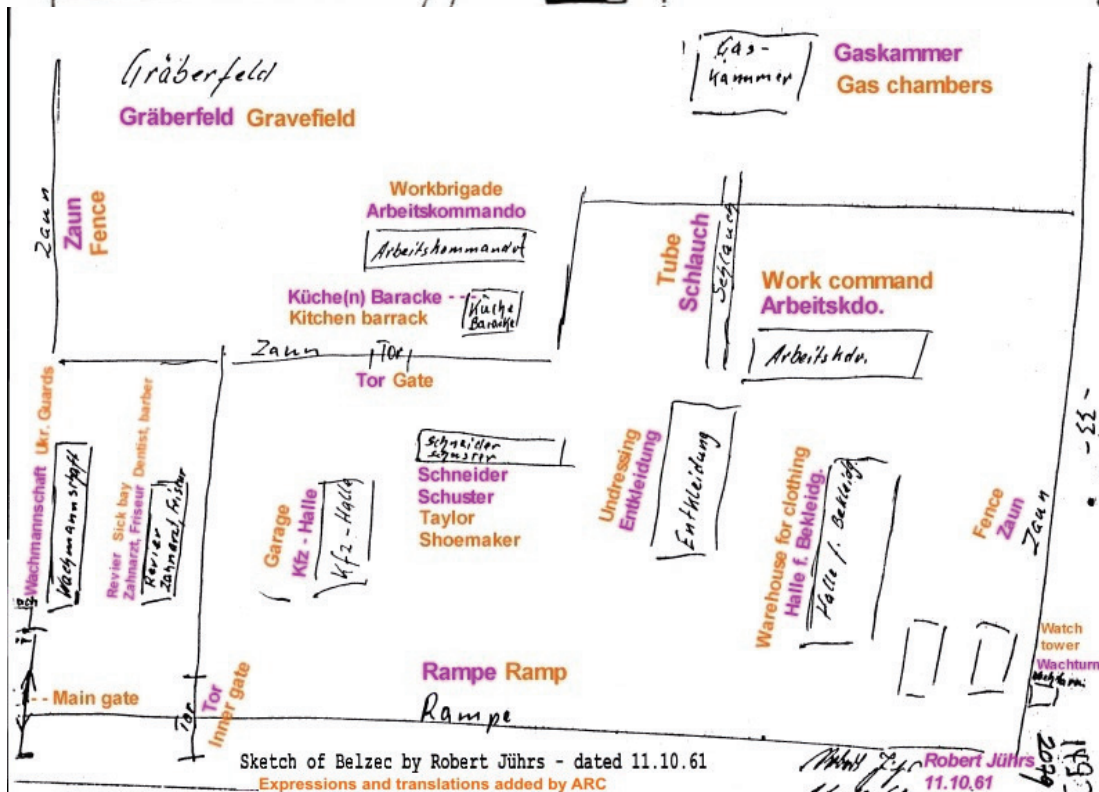 Gräberfeld
Gräberfeld Gravefield
Gas-
kammer
Gaskammer
Gas chambers
Zaun
Zaun
Fence
Workbrigade
Arbeitskommando
Arbeitskommando
Küche(n) Baracke
Kitchen barrack
Küche
Baracke
Zaun
Tor
Tor Gate
Tube
Schlauch
Schlauch
Work command
Arbeitskdo.
Arbeitskdo.
Wachmannschaft Ukr. Guards
Wachmannschaft
Revier Sick bay
Zahnarzt, Friseur Dentist, barber
Revier
Zahnarzt, Friseur
Garage
Kfz - Halle
Kfz-Halle
Schneider
Schuster
Schneider
Schuster
Taylor
Shoemaker
Undressing
Entkleidung
Entkleidung
Warehouse for clothing
Halle f. Bekleidg.
Halle f. Bekleidg
Fence
Zaun
Zaun
-33-
Watch
tower
Wachturm
Wachturm
Main gate
Tor
Tor
Inner gate
Rampe Ramp
Rampe
Sketch of Belzec by Robert Jührs - dated 11.10.61
Expressions and translations added by ARC
Robert Jührs
11.10.61
2079